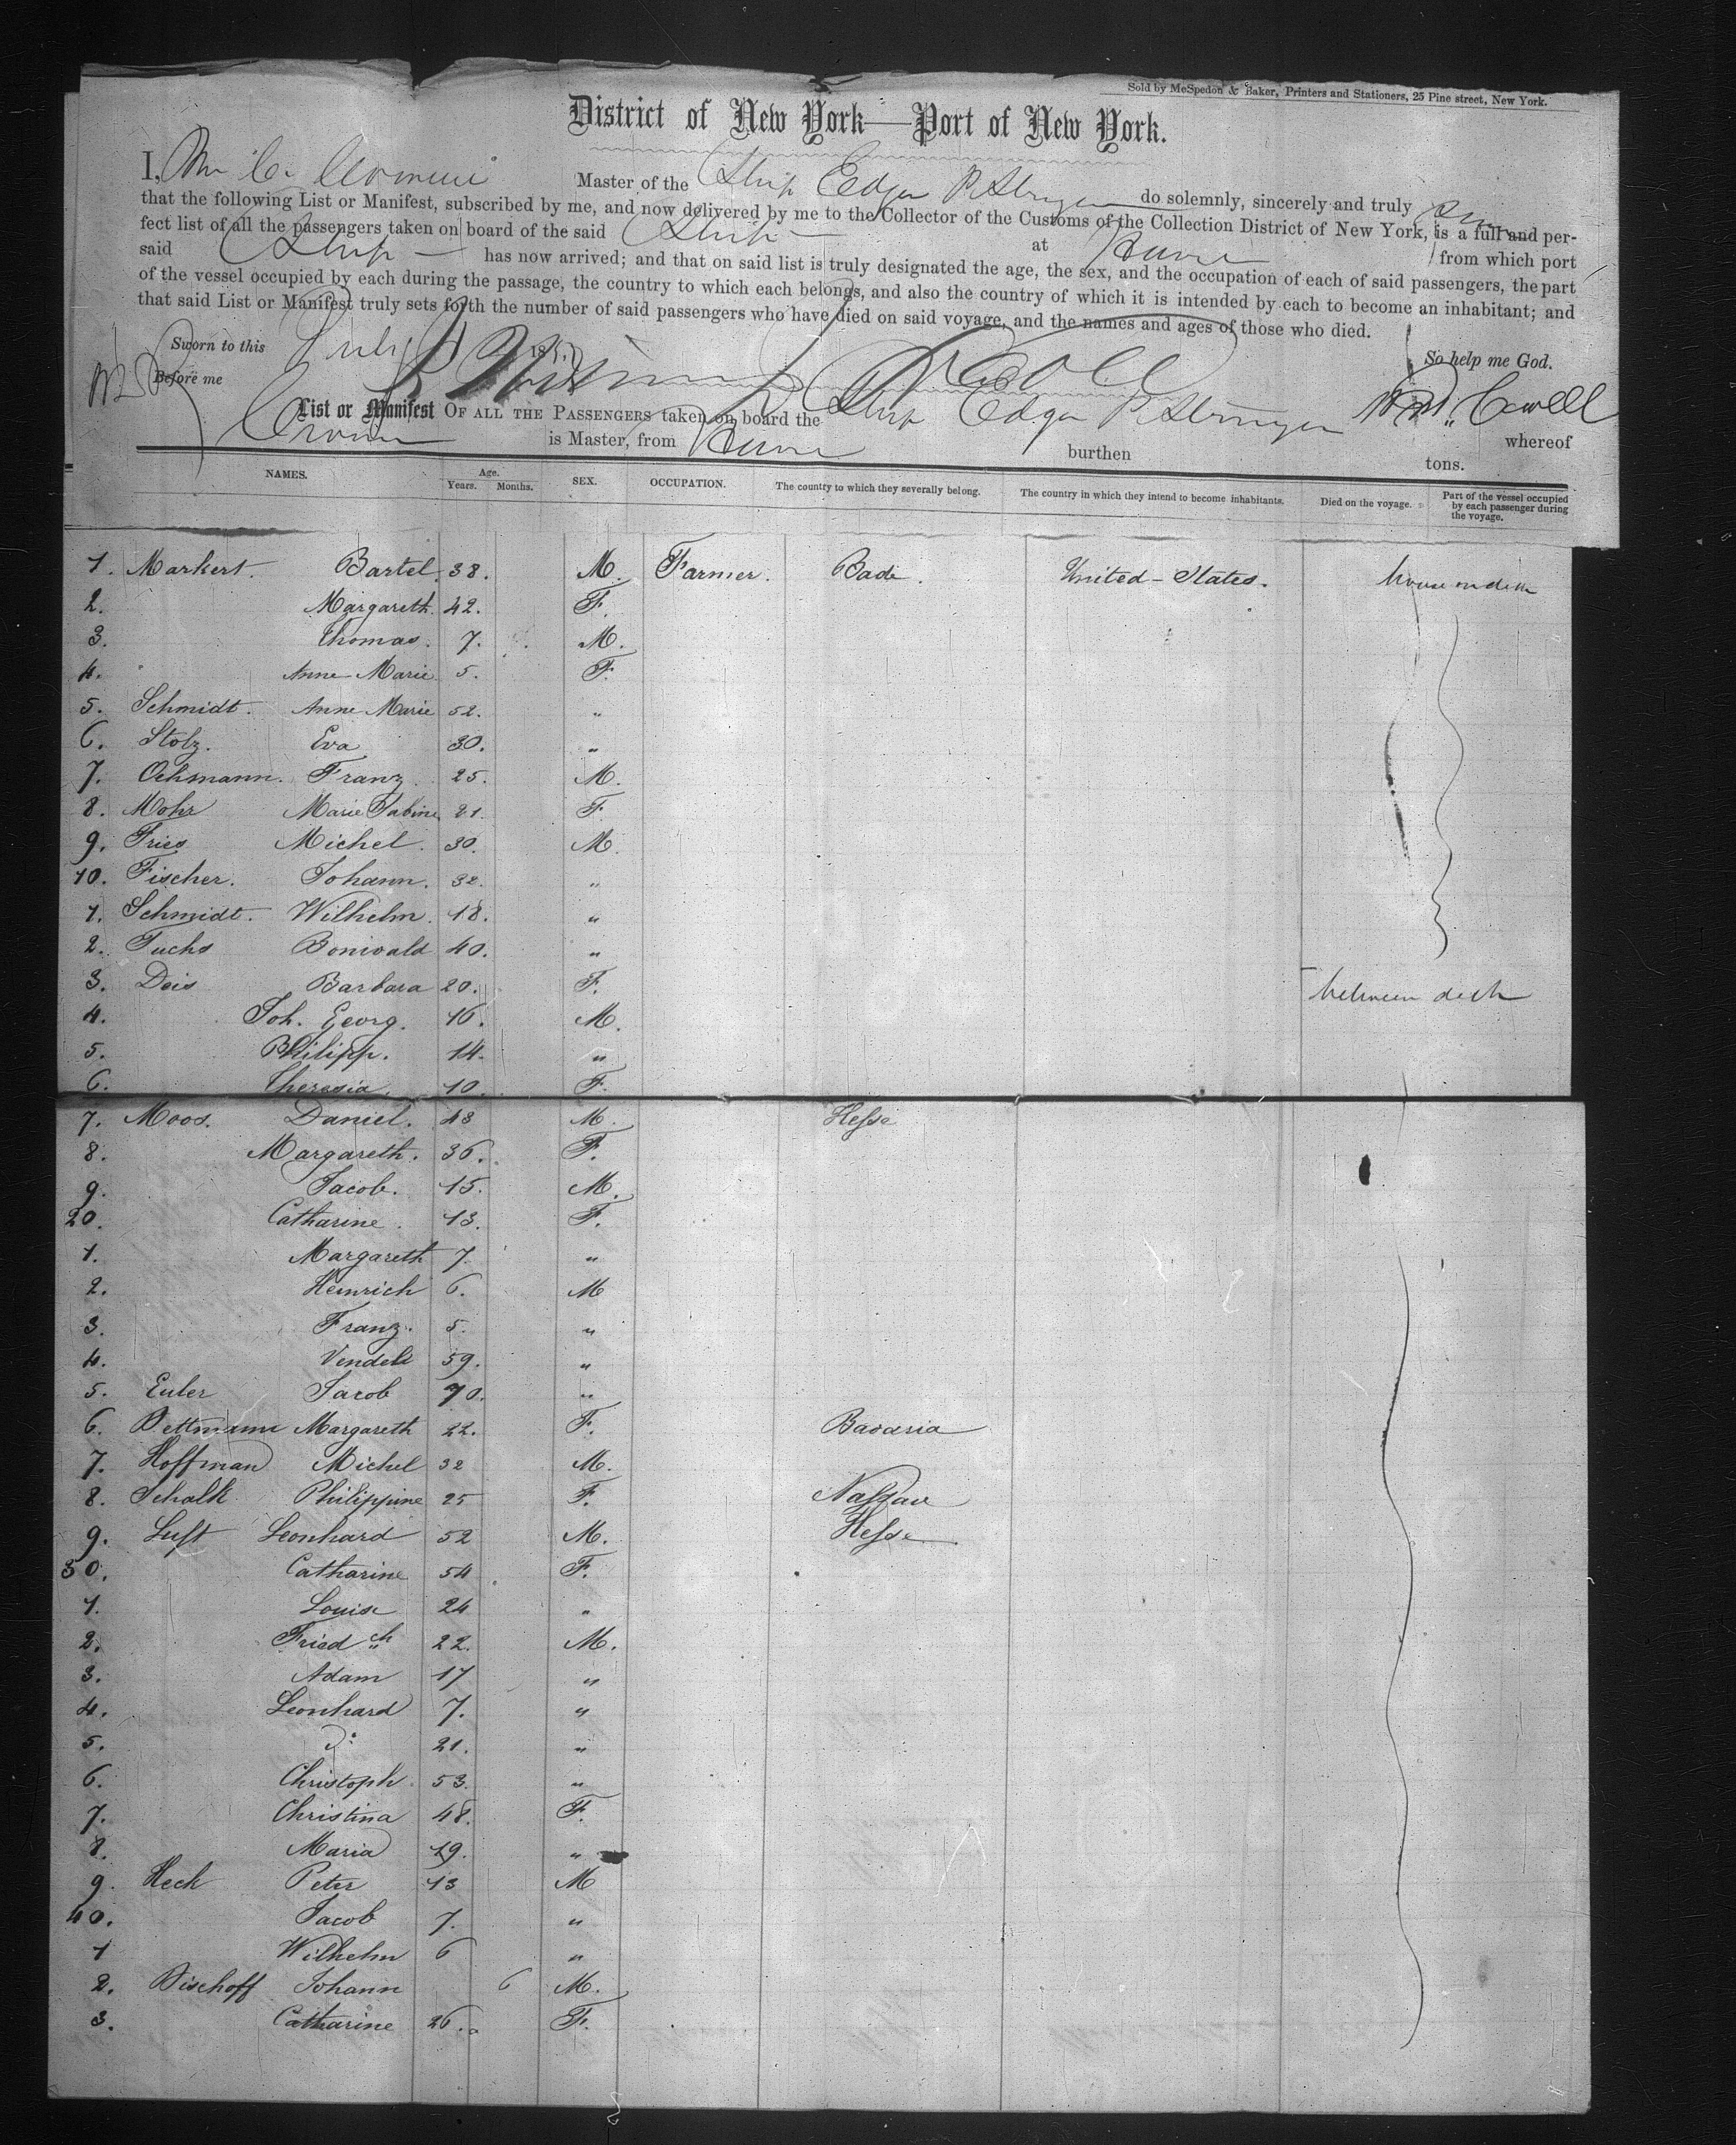 Sold by McSpedon & Baker, Printers and Stationers, 25 Pine street, New York.
District of New York—Port of New York.
I, Master of the Ship Edgar P. Stringer do solemnly, sincerely and truly
that the following List or Manifest, subscribed by me, and now delivered by me to the Collector of the Customs of the Collection District of New York, is a full and per-
fect list of all the passengers taken on board of the said Ship at Havre from which port
said Ship has now arrived; and that on said list is truly designated the age, the sex, and the occupation of each of said passengers, the part
of the vessel occupied by each during the passage, the country to which each belongs, and also the country of which it is intended by each to become an inhabitant; and
that said List or Manifest truly sets forth the number of said passengers who have died on said voyage, and the names and ages of those who died.
Sworn to this July 185 So help me God.
Before me
List or Manifest OF ALL THE PASSENGERS taken on board the Ship Edgar P. Stringer whereof
is Master, from Havre burthen tons.
NAMES. Age. Years. Months. SEX. OCCUPATION. The country to which they severally belong. The country in which they intend to become inhabitants. Died on the voyage. Part of the vessel occupied by each passenger during the voyage.
1. Markert. Bartel. 38. M. Farmer. Bade. United-States. house on deck
2. Margareth. 42. F.
3. Thomas. 7. M.
4. Anne Marie 5. F.
5. Schmidt. Anne Marie 52. "
6. Stolz. Eva 30. "
7. Oehmann. Franz 25. M.
8. Mohr Marie Sabine 21. F.
9. Fries Michel. 30. M.
10. Fischer. Johann. 32. "
1. Schmidt. Wilhelm. 18. "
2. Fuchs Boniwald 40. "
3. Deis Barbara 20. F. between deck
4. Joh. Georg. 16. M.
5. Philipp. 14. "
6. Theresia. 10. F.
7. Moos. Daniel. 43 M. Hesse
8. Margareth. 36. F.
9. Jacob. 15. M.
20. Catharine. 13. F.
1. Margareth 7. "
2. Heinrich 6. M
3. Franz. 5. "
4. 59. "
5. Euler Jacob 70. "
6. Bettmann Margareth 22. F. Bavaria
7. Hoffman Michel 32 M.
8. Schalk Philippine 25 F. Nassau
9. Luft Leonhard 52 M. Hesse
30. Catharine 54 F.
1. Louise 24 "
2. Friedch 22. M.
3. Adam 17 "
4. Leonhard 7. "
5. do 21. "
6. Christoph. 53. "
7. Christina 48. F.
8. Maria 19. "
9. Heck Peter 13 M
40. Jacob 7. "
1 Wilhelm 6 "
2. Bischoff Johann 6 M.
3. Catharine 26. F.